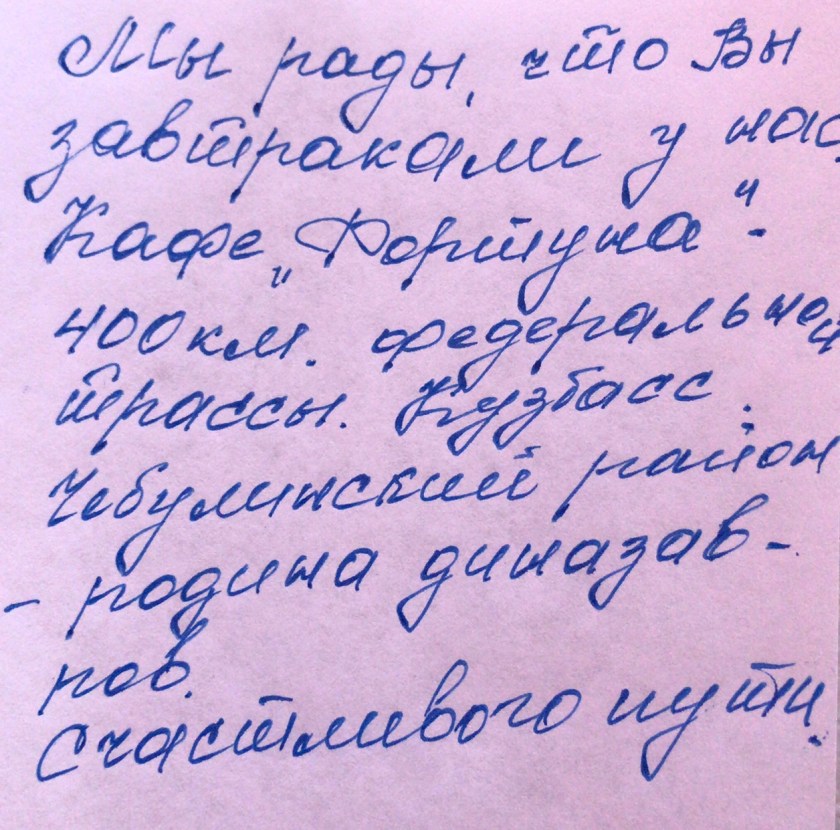 Мы рады, что Вы
завтракали у нас.
Кафе „Фортуна".
400км. федеральной
трассы. Кузбасс.
Чебулинский район
- родина диназав-
ров.
Счастливого пути.